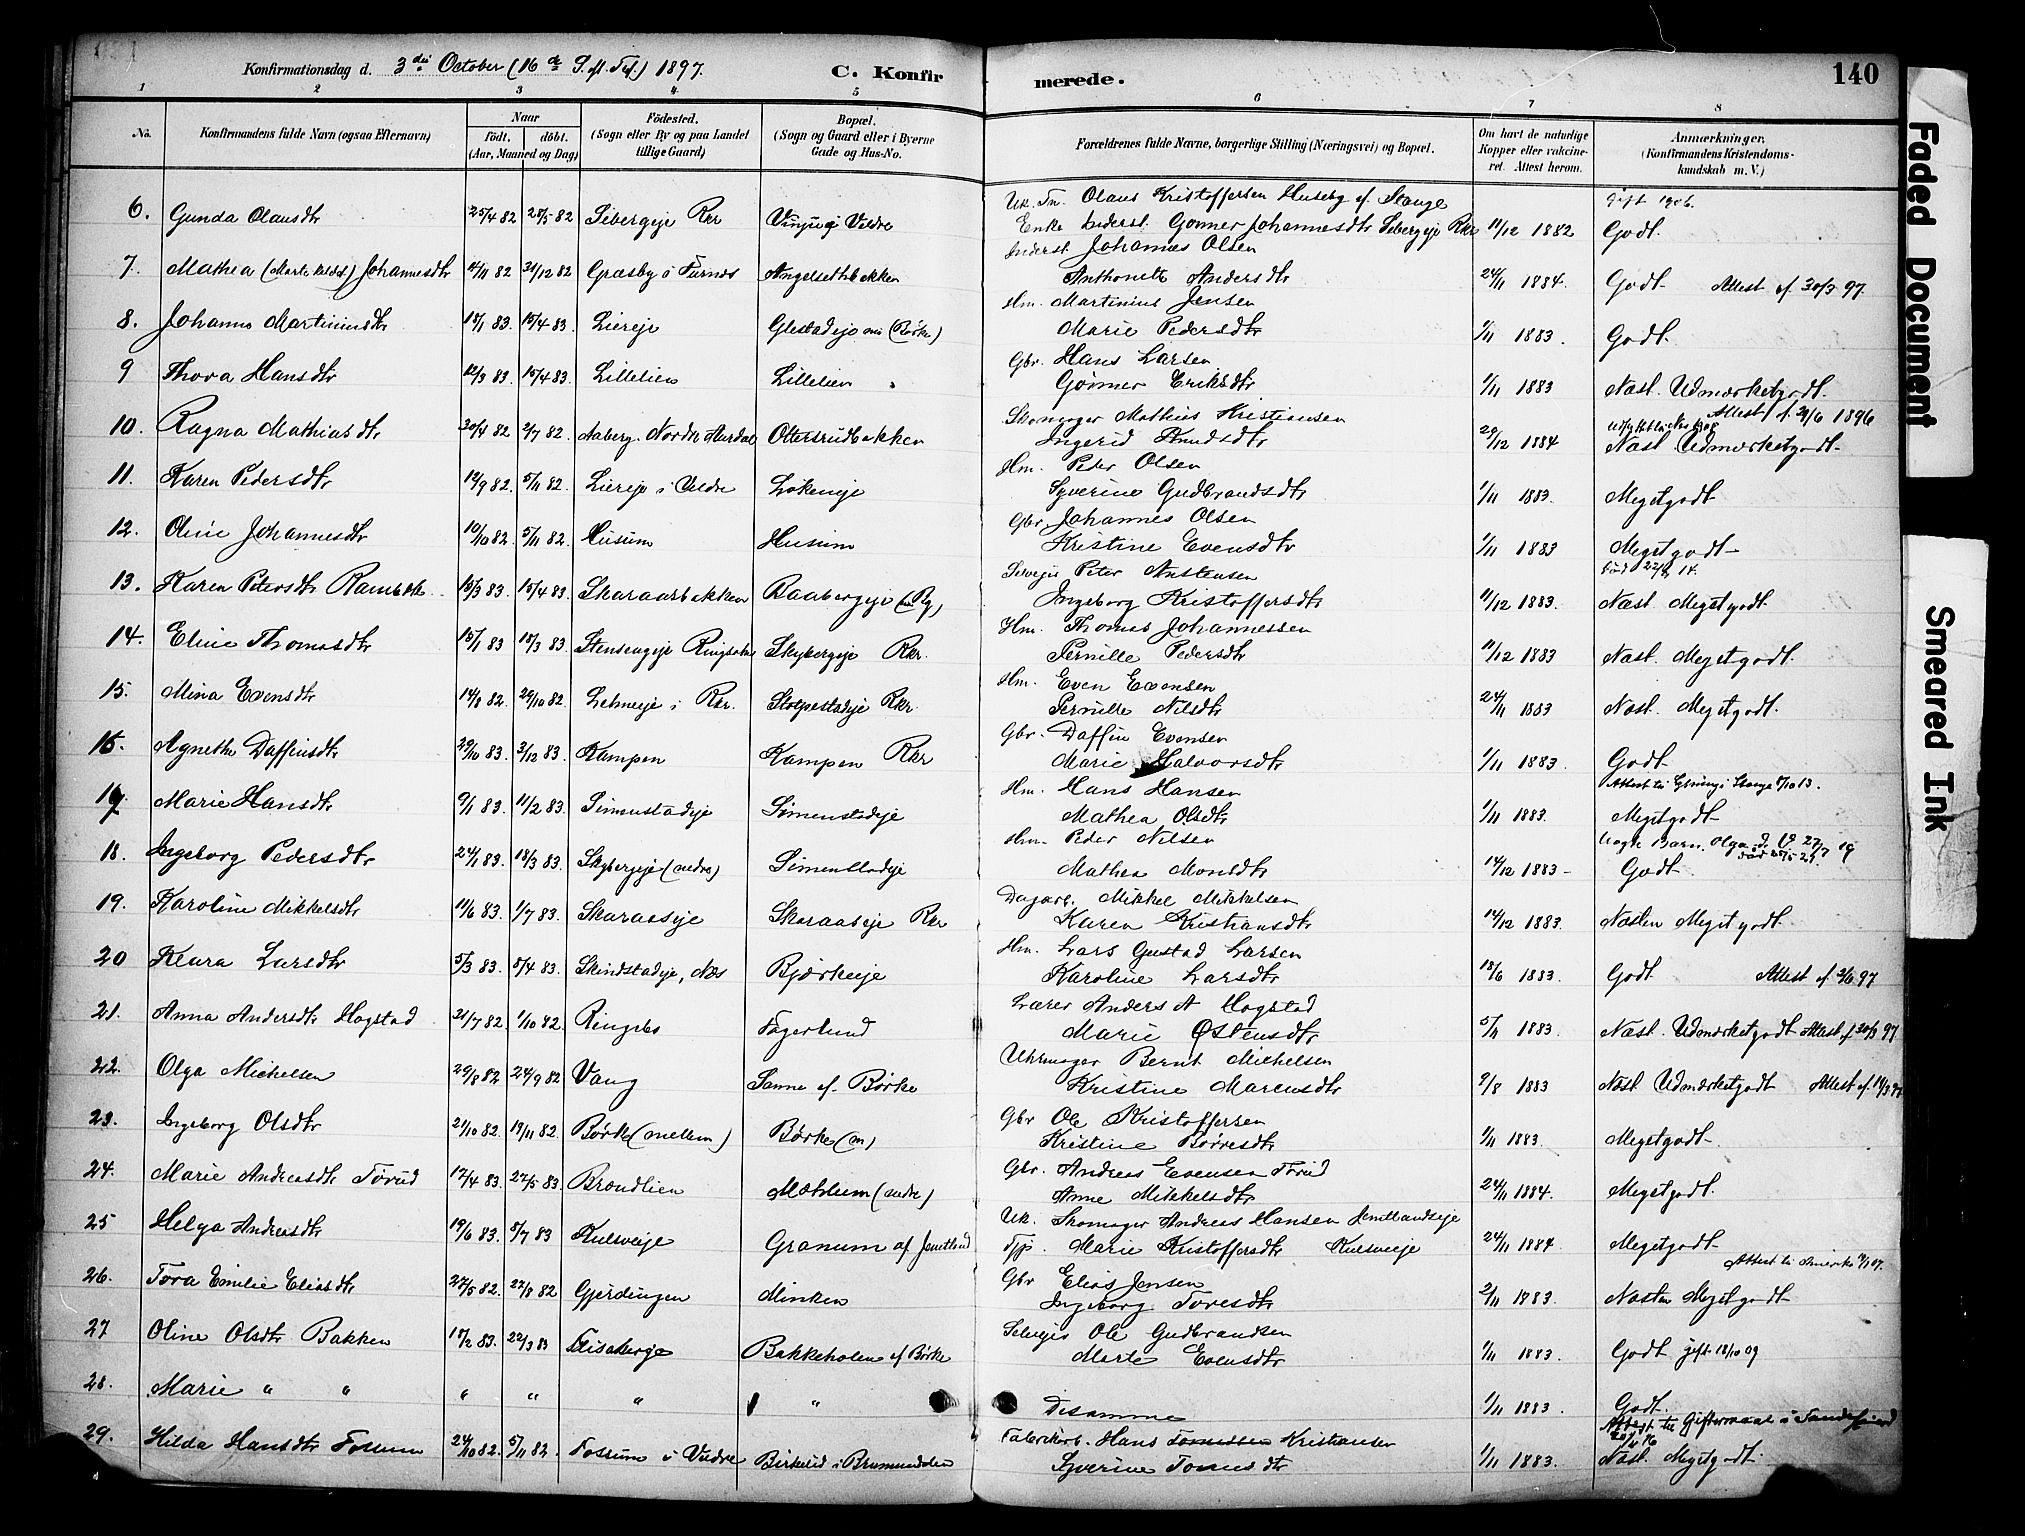 Konfirmationsdag d. 3die October (16de S. e. Tr.) 1897.
C. Konfirmerede.
140
1 2 3 4 5 6 7 8
No.
Konfirmandens fulde Navn (ogsaa Efternavn)
Naar
født. døbt.
(Aar, Maaned og Dag)
Fødested.
(Sogn eller By og paa Landet tillige Gaard)
Bopæl.
(Sogn og Gaard eller i Byerne Gade og Hus-No.
Forældrenes fulde Navne, borgerlige Stilling (Næringsvei) og Bopæl.
Om havt de naturlige Kopper eller vakcineret. Attest herom.
Anmærkninger.
(Konfirmandens Kristendomskundskab m. V.)
6. Gunda Olausdtr 25/4 82 28/5 82 Sebergeje Rkr i Veldre Uk. Olaus Kristoffersen Huseby af Stange
Enke Inderst. Gonner Johannesdtr Sebergeje Rkr 11/12 1882 Godt. gift 1906.
7. Mathea (Marte kaldt) Johannesdtr 12/11 82 31/12 82 Græsby i Furnes Angelsethbakken Inderst. Johannes Olsen
Anthonette Andersdtr 24/11 1884. Godt Attest af 30/3 97.
8. Johanne Martiniusdtr 18/1 83. 15/4 83. Liereje Glestadeje (Børke) Hm. Martinius Jensen
Marie Pedersdtr 1/11 1883. Godt.
9 Thora Hansdtr 12/3 83. 15/4 83. Lillelien Lillelien Gbr. Hans Larsen
Gønner Eriksdtr 1/11 1883 Næst. Udmærketgodt.
10. Ragna Mathiasdtr 30/4 82 2/7 82. Aaberg. Nordre Aurdal Ottersrudbakken Skomager Mathias Kristiansen
Ingerid Knudsdtr 29/12 1884 Næst Udmærketgodt Attest 1896
11. Karen Pedersdtr 14/9 82. 5/11 82. Liereje i Veldre Løkeneje Hm. Peder Olsen
Syverine Gudbrandsdtr 1/11 1883. Megetgodt
12. Oline Johannesdtr 10/10 82. 5/11 82. Husum Husum Gbr. Johannes Olsen
Kristine Evensdtr 1/11 1883 Megetgodt
13. Karen Petersdtr Rambæk 10/3 83. 15/4 83. Skaraarbakken Baabergeje (Rg) Selveje Peter Austensen
Ingeborg Kristoffersdtr 11/12 1883. Næst Megetgodt.
14. Eline Thomasdtr 15/1 83 18/3 83. Stensengeje Ringsaker Skybergeje Rkr. Hm. Thomas Johannessen
Pernille Pedersdtr 11/12 1883 Næst. Megetgodt.
15. Mina Evensdtr 14/8 82. 29/10 82 Lehneeje i Rkr. Stolpestadeje Rkr. Hm. Even Evensen
Pernille Nilsdtr 24/11 1883 Næst. Megetgodt.
16. Agnethe Daffinsdtr 29/10 83. 3/12 83. Kampen Kampen Rkr Gbr. Daffin Evensen
Marie Halvorsdtr 1/11 1883. Godt.
17. Marie Hansdtr 9/1 83. 11/2 83. Simenstadeje Simenstadeje Hm. Hans Hansen
Mathea Olsdtr 1/11 1883. Megetgodt
18. Ingeborg Pedersdtr 24/1 83. 18/3 83. Skybergeje (nedre) Simenstadeje Hm. Peder Nilsen
Mathea Monsdtr 14/12 1883 Godt.
19. Karoline Mikkelsdtr 11/6 83. 1/7 83. Skaraaseje Skaraaseje Rkr Dagarb. Mikkel Mikkelsen
Karen Kristiansdtr 14/12 1883. Næsten Megetgodt.
20 Klara Larsdtr 5/3 83. 8/4 83. Skindstadeje, Næs Bjørkeeje Hm. Lars Gustad Larsen
Karoline Larsdtr 18/6 1883. Godt Attest af 97
21. Anna Andersdtr Hagstad 21/7 82. 1/10 82. Ringebo Fagerlund Lærer Anders A Hagstad
Marie Østensdtr 5/11 1883. Næst. Udmærketgodt Attest af 30/3 97
22. Olga Michelsen 29/8 82 24/9 82 Vang Sanne af Børke Uhrmager Bernt Michelsen
Kristine Marcusdtr 9/8 1883 Næst Udmærketgodt Attest af
23. Ingeborg Olsdtr 21/10 82. 19/11 82. Børke (mellem) Børke (m) Gbr Ole Kristoffersen
Kristine Børresdtr 1/11 1883. Megetgodt
24. Marie Andreasdtr Forud 17/4 83. 27/5 83. Brændlien Mæhlum (nedre) Gbr. Andreas Evensen Forud
Anne Mikkelsdtr 24/11 1884. Megetgodt.
25 Helga Andreasdtr 19/6 83. 8/7 83 Kulsveeje Granum af Jemtlund Uk. Skomager Andreas Hansen Jemtlandseje
Tjp. Marie Kristoffersdtr Kulsveeje 24/11 1884 Megetgodt
26. Tora Emilie Eliasdtr 27/5 82. 27/8 82 Gjerdingen Minken Gbr Elias Jensen
Ingeborg Toresdtr 2/11 1883. Næsten Megetgodt Attest til Amerika
27 Oline Olsdtr Bakken 18/2 83. 22/3 83 Flisabergeje Bakkeholen af Børke Selvejer Ole Gudbrandsen
Marte Evensdtr 1/11 1883. Godt gift 18/10 09
28. Marie " " " " " " Desamme 1/11 1883. Godt.
29. Hilda Hansdtr Fossum 24/10 82. 5/11 82. Fossum i Veldre Birkelid i Brumunddalen Fabrikarb. Hans Kristiansen
Syverine Tomesdtr 1/11 1883. Næst Megetgodt. Attest til Giftermaal i Sandefjord
Faded Document
Smeared Ink